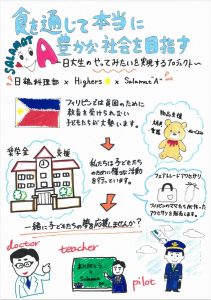 食を通して本当に
豊かな社会を目指す
Salamat
A
〜日大生のやってみたいを実現するプロジェクト〜
日鶴料理部 × Highers☆ × Salamat"A"
フィリピンでは貧困のために
教育を受けられない
子どもたちが大勢います。
物品支援
奨学金
支援
私たちは子どもたち
のために様々な活動
を行っています。
フェアトレードアクセサリー
フィリピンのママたちが作った
アクセサリーを販売します。
一緒に子どもたちの夢を応援しませんか？
doctor
teacher
pilot
ありがとう
Salamat